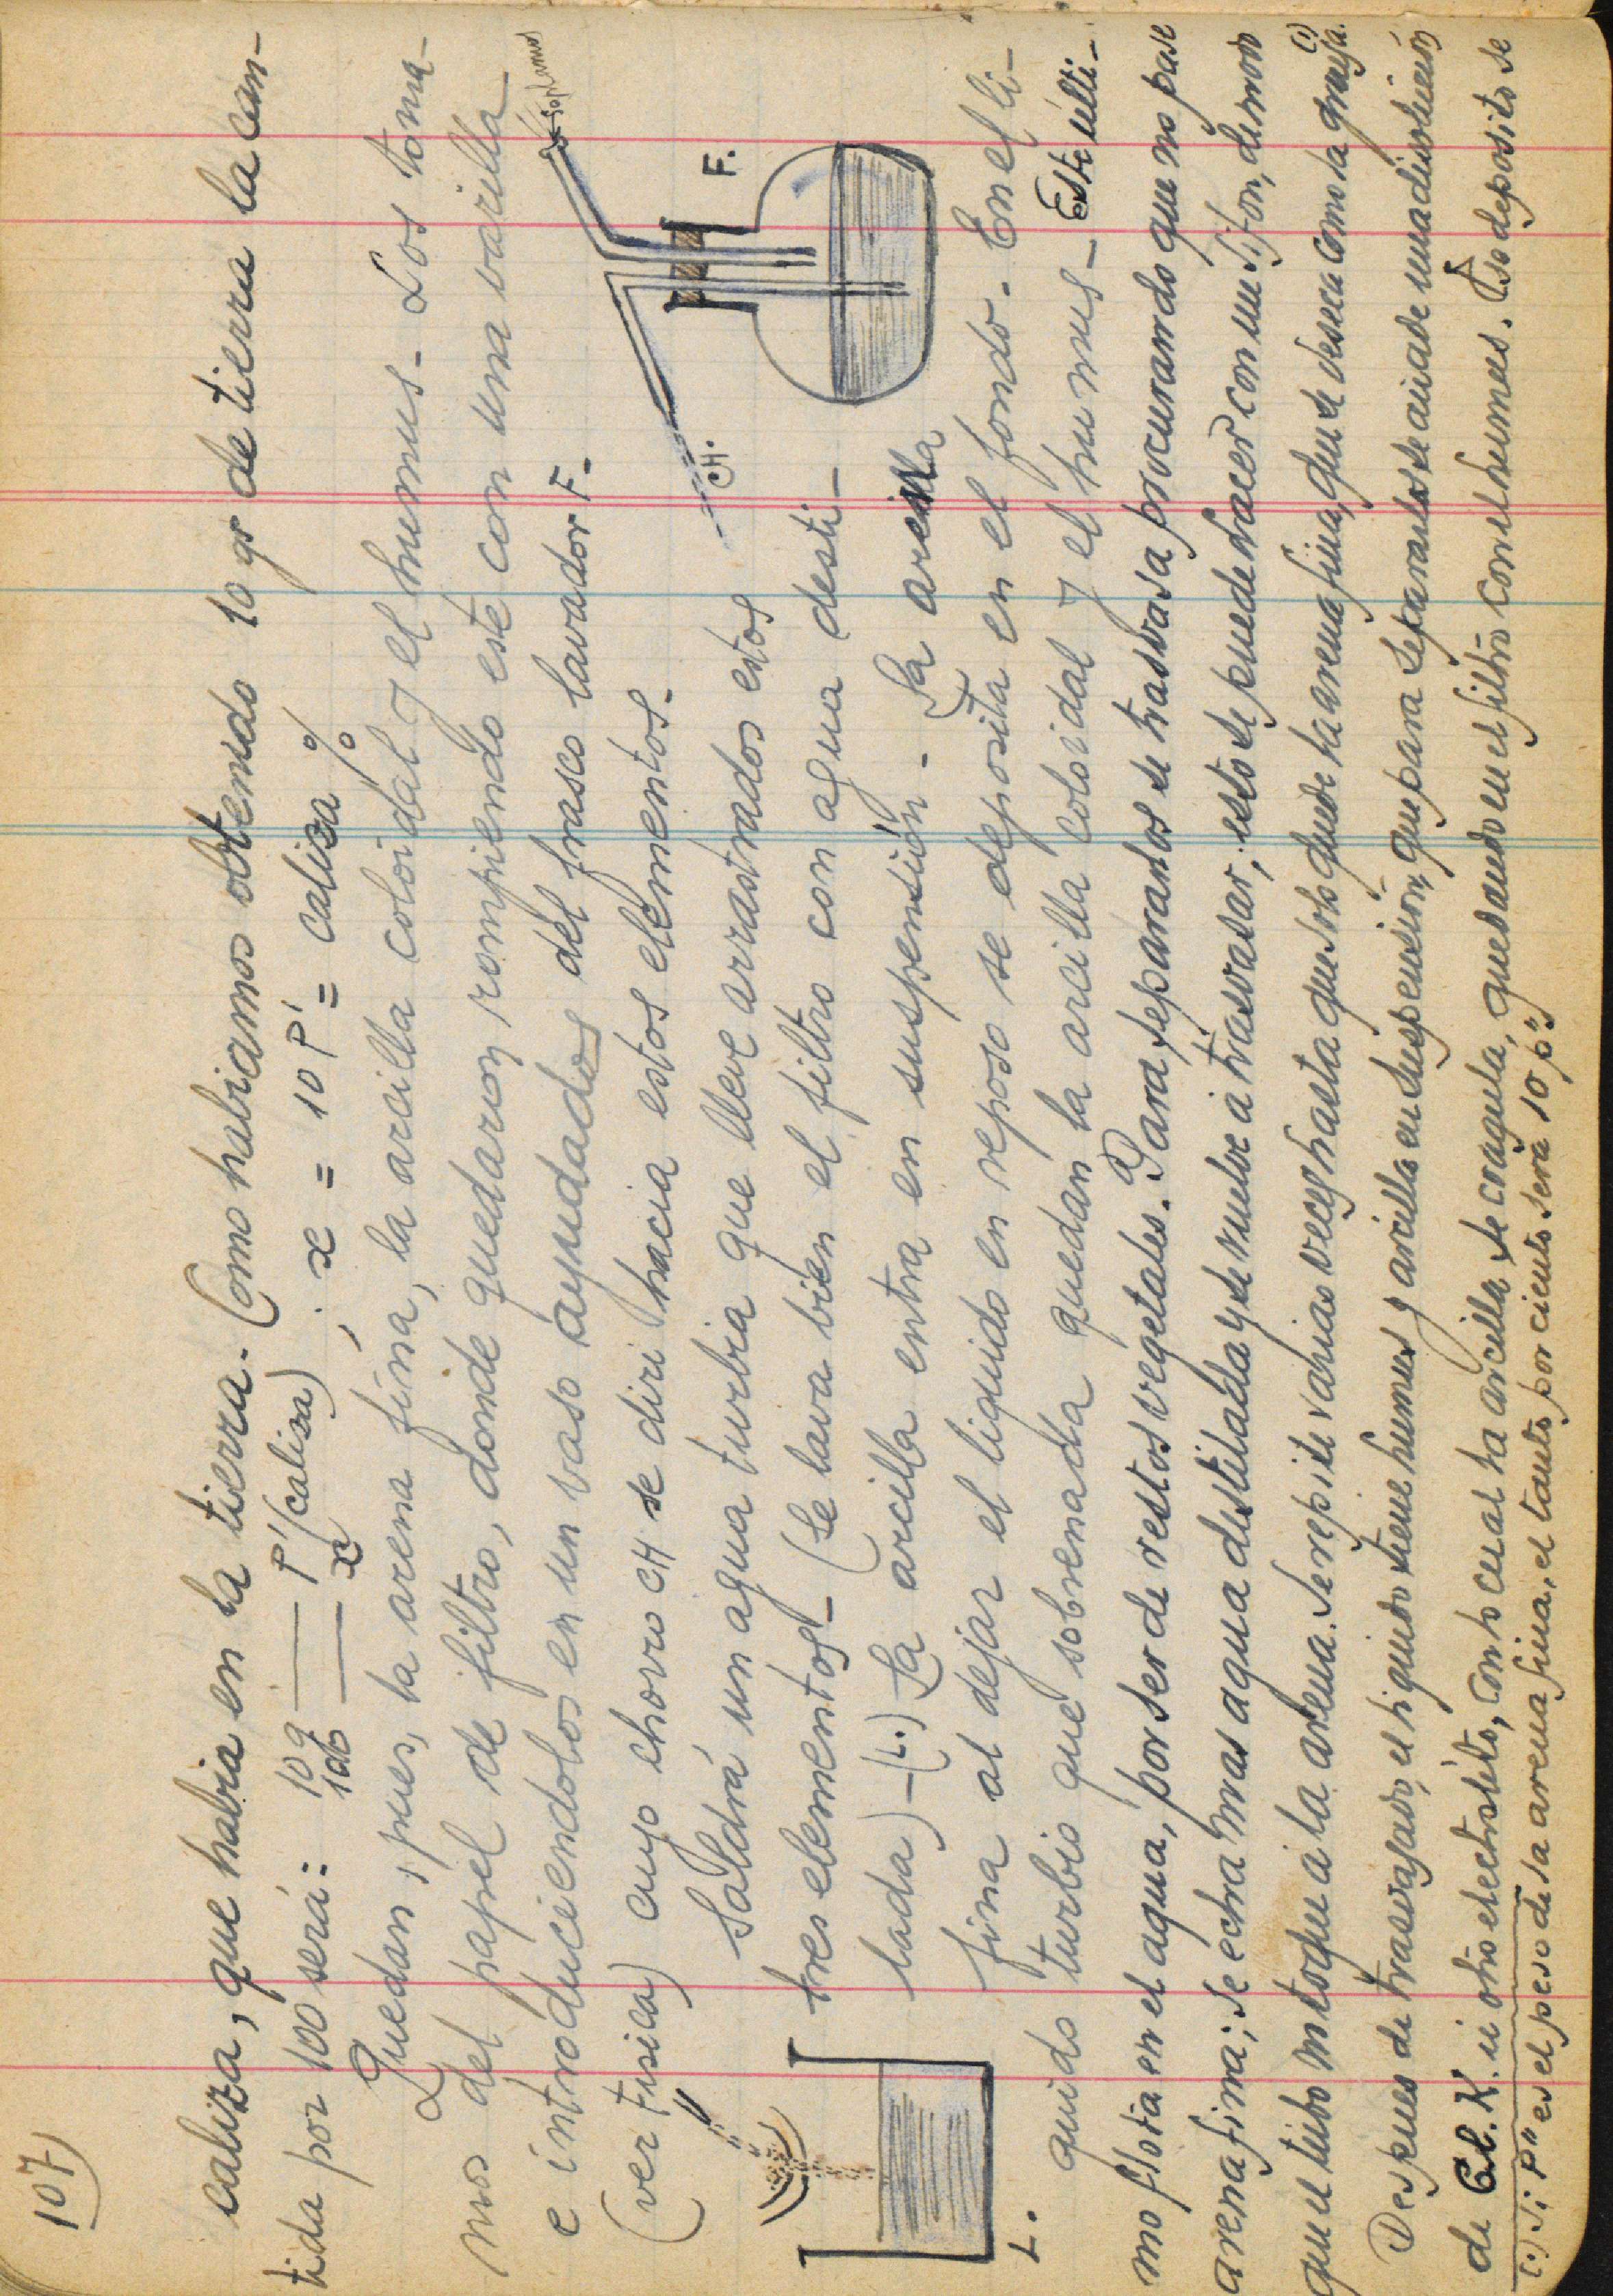 107)
caliza, que habia en la tierra. Como habiamos obtenido 10 gr de tierra la can-
tida por 100 será: 10 g — P'(caliza) ; x = 10 P' = caliza %
100 — x
Quedan, pues, la arena fina, la arcilla coloidal y el humus. Los toma-
mos del papel de filtro, donde quedarion, rompiendo este con una varilla
e introduciendolos en un vaso ayudados del frasco lavador F.-
(ver fisica) cuyo chorro CH se diri hacia estos elementos.-
soplamos
CH.
F.
Saldrá un agua turbia que lleve arrastrados estos
tres elementos - (Se lava bien el filtro con agua desti-
lada) - (L.) La arcilla entra en suspensión - La arena
fina al dejar el liquido en reposo se deposita en el fondo. En el li-
L.
quido turbio que sobrenada quedan la arcilla coloidal y el humus - Este ulti-
mo flota en el agua, por ser de restos vegetales. Para separarlos se trasvasa procurando que no pase
arena fina; se echa mas agua destilada y se vuelve a trasvasar; esto se puede hacer con un sifon, de modo
que el tubo no toque a la arena. Se repite varias veces hasta que solo quede la arena fina, que se deseca como la gruesa. (1)
Despues de trasvasado, el liquido tiene humus y arcilla en suspensión, que para separarlos se añade una disolución
de Cl.K. u otro electrolito, con lo cual la arcilla se coagula, quedando en el filtro con el humus. Ese deposito se
(1) Si p" es el peso de la arena fina, el tanto por ciento sera 10 p"